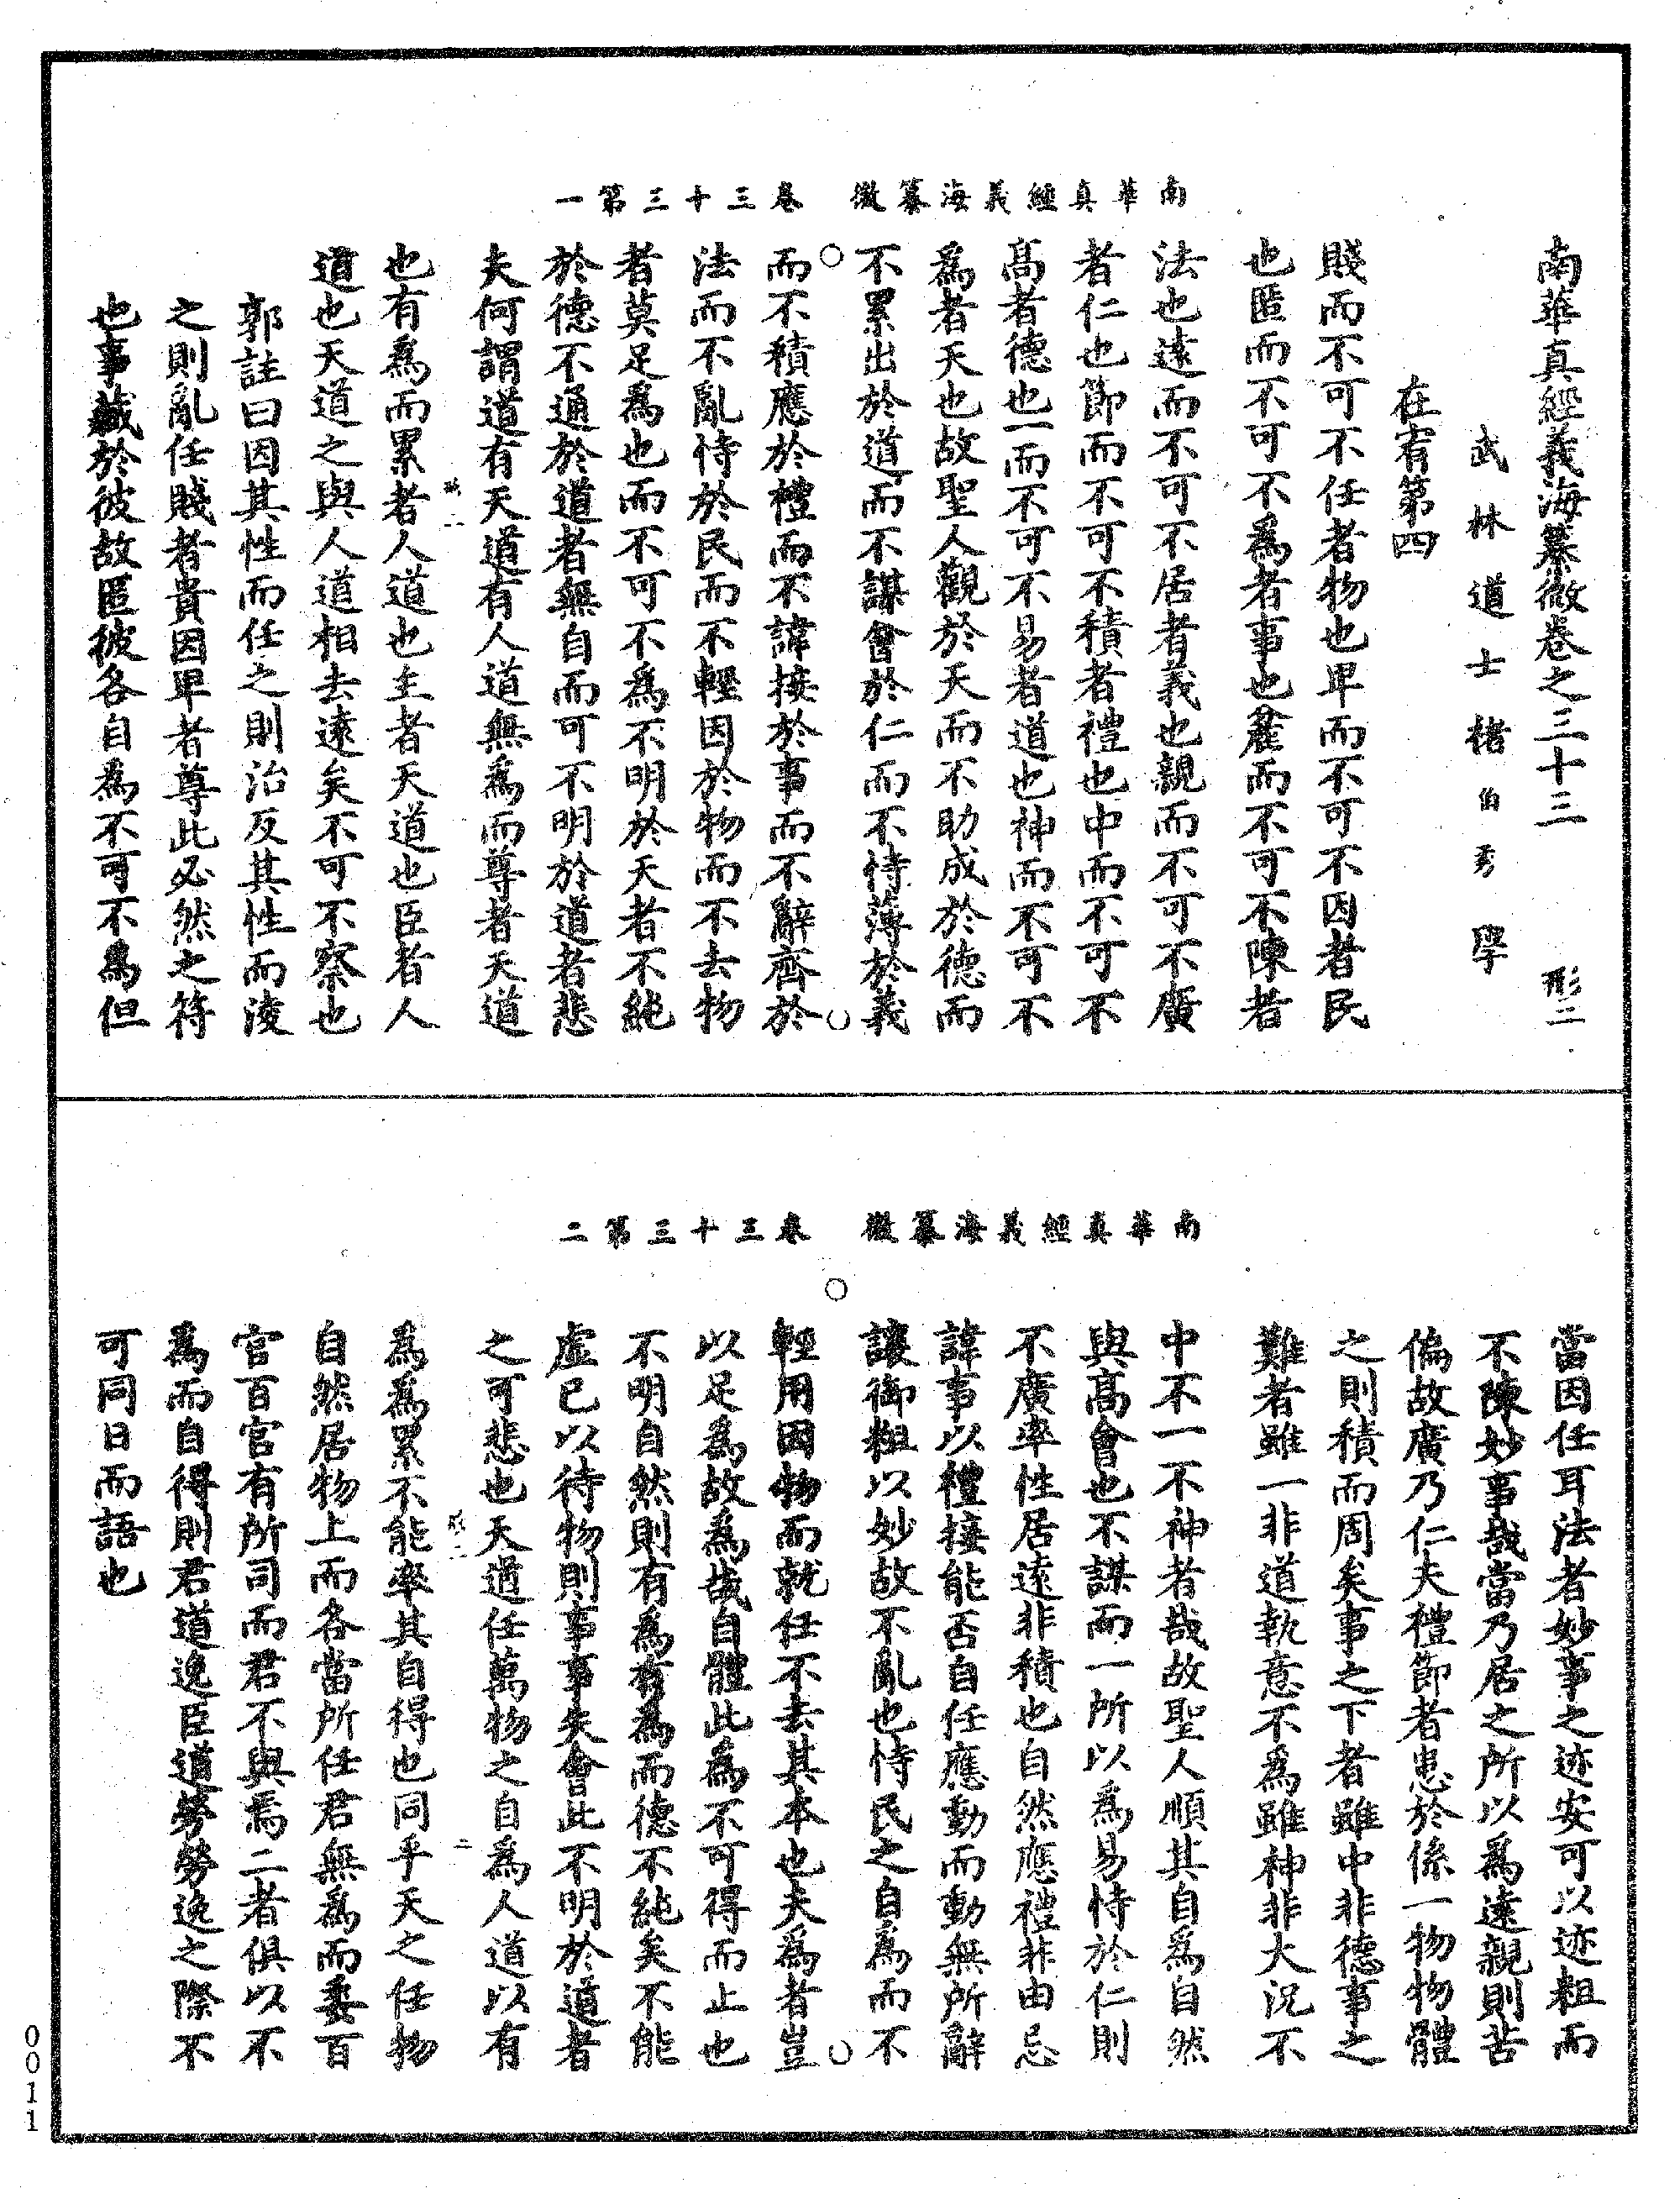 南華真經義海纂微　卷三十三第一
南華真經義海纂微卷之三十三　形二
武林道士褚伯秀學
在宥第四
賤而不可不任者物也卑而不可不因者民
也匿而不可不為者事也麄而不可不陳者
法也遠而不可不居者義也親而不可不廣
者仁也節而不可不積者禮也中而不可不
高者德也一而不可不易者道也神而不可不
為者天也故聖人觀於天而不助成於德而
不累出於道而不謀會於仁而不恃薄於義
而不積應於禮而不諱接於事而不辭齊於
法而不亂恃於民而不輕因於物而不去物
者莫足為也而不可不為不明於天者不純
於德不通於道者無自而可不明於道者悲
夫何謂道有天道有人道無為而尊者天道
也有為而累者人道也主者天道也臣者人
道也天道之與人道相去遠矣不可不察也
郭註曰因其性而任之則治反其性而淩
之則亂任賤者貴因卑者尊此必然之符
也事藏於彼故匿彼各自為不可不為但
南華真經義海纂微　卷三十三第二
當因任耳法者妙事之迹安可以迹粗而
不陳妙事哉當乃居之所以為遠親則苦
偏故廣乃仁夫禮節者患於係一物物體
之則積而周矣事之下者雖中非德事之
難者雖一非道執意不為雖神非大況不
中不一不神者哉故聖人順其自為自然
與高會也不謀而一所以為易恃於仁則
不廣率性居遠非積也自然應禮非由忌
諱事以禮接能否自任應動而動無所辭
讓御粗以妙故不亂也恃民之自為而不
輕用因物而就任不去其本也夫為者豈
以足為故為哉自體此為不可得而止也
不明自然則有為有為而德不純矣不能
虛已以待物則事事失會此不明於道者
之可悲也天道任萬物之自為人道以有
為為累不能率其自得也同乎天之任物
自然居物上而各當所任君無為而委百
官百官有所司而君不與焉二者俱以不
為而自得則君道逸臣道勞勞逸之際不
可同日而語也
0011